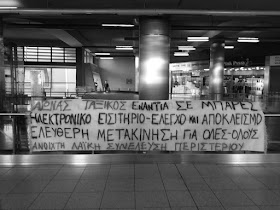 ΑΓΩΝΑΣ ΤΑΞΙΚΟΣ ΕΝΑΝΤΙΑ ΣΕ ΜΠΑΡΕΣ
ΗΛΕΚΤΡΟΝΙΚΟ ΕΙΣΙΤΗΡΙΟ-ΕΛΕΓΧΟ ΚΑΙ ΑΠΟΚΛΕΙΣΜΟ
ΕΛΕΥΘΕΡΗ ΜΕΤΑΚΙΝΗΣΗ ΓΙΑ ΟΛΕΣ-ΟΛΟΥΣ
ΑΝΟΙΧΤΗ ΛΑΪΚΗ ΣΥΝΕΛΕΥΣΗ ΠΕΡΙΣΤΕΡΙΟΥ